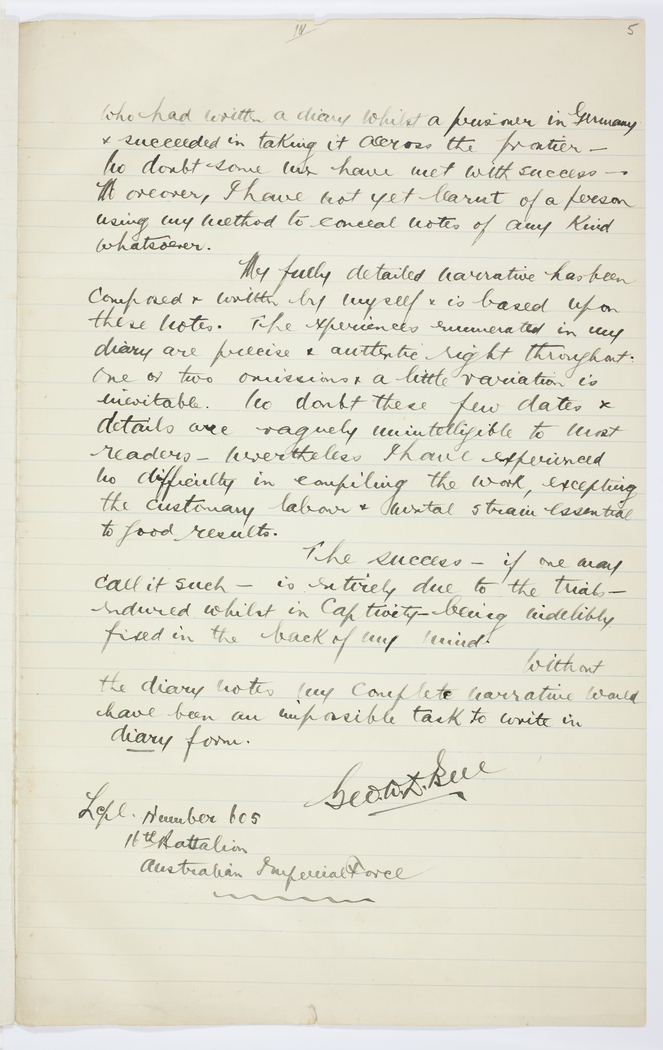 IV
5
who had written a diary whilst a prisoner in Germany
& succeeded in taking it across the frontier —
No doubt some men have met with success —
Moreover, I have not yet learnt of a person
using my method to conceal notes of any kind
whatsoever.
My fully detailed narrative has been
composed & written by myself & is based upon
these notes. The experiences enumerated in my
diary are precise & authentic right throughout.
One or two omissions & a little variation is
inevitable. No doubt these few dates &
details are vaguely unintelligible to most
readers — nevertheless I have experienced
no difficulty in compiling the work, excepting
the customary labour & mental strain essential
to good results.
The success — if one may
call it such — is entirely due to the trials —
endured whilst in Captivity — being indelibly
fixed in the back of my mind.
Without
the diary notes my complete narrative would
have been an impossible task to write in
diary form.
Geo. W. D. Bell
Lcpl. Number 605
16th Battalion
Australian Imperial Force